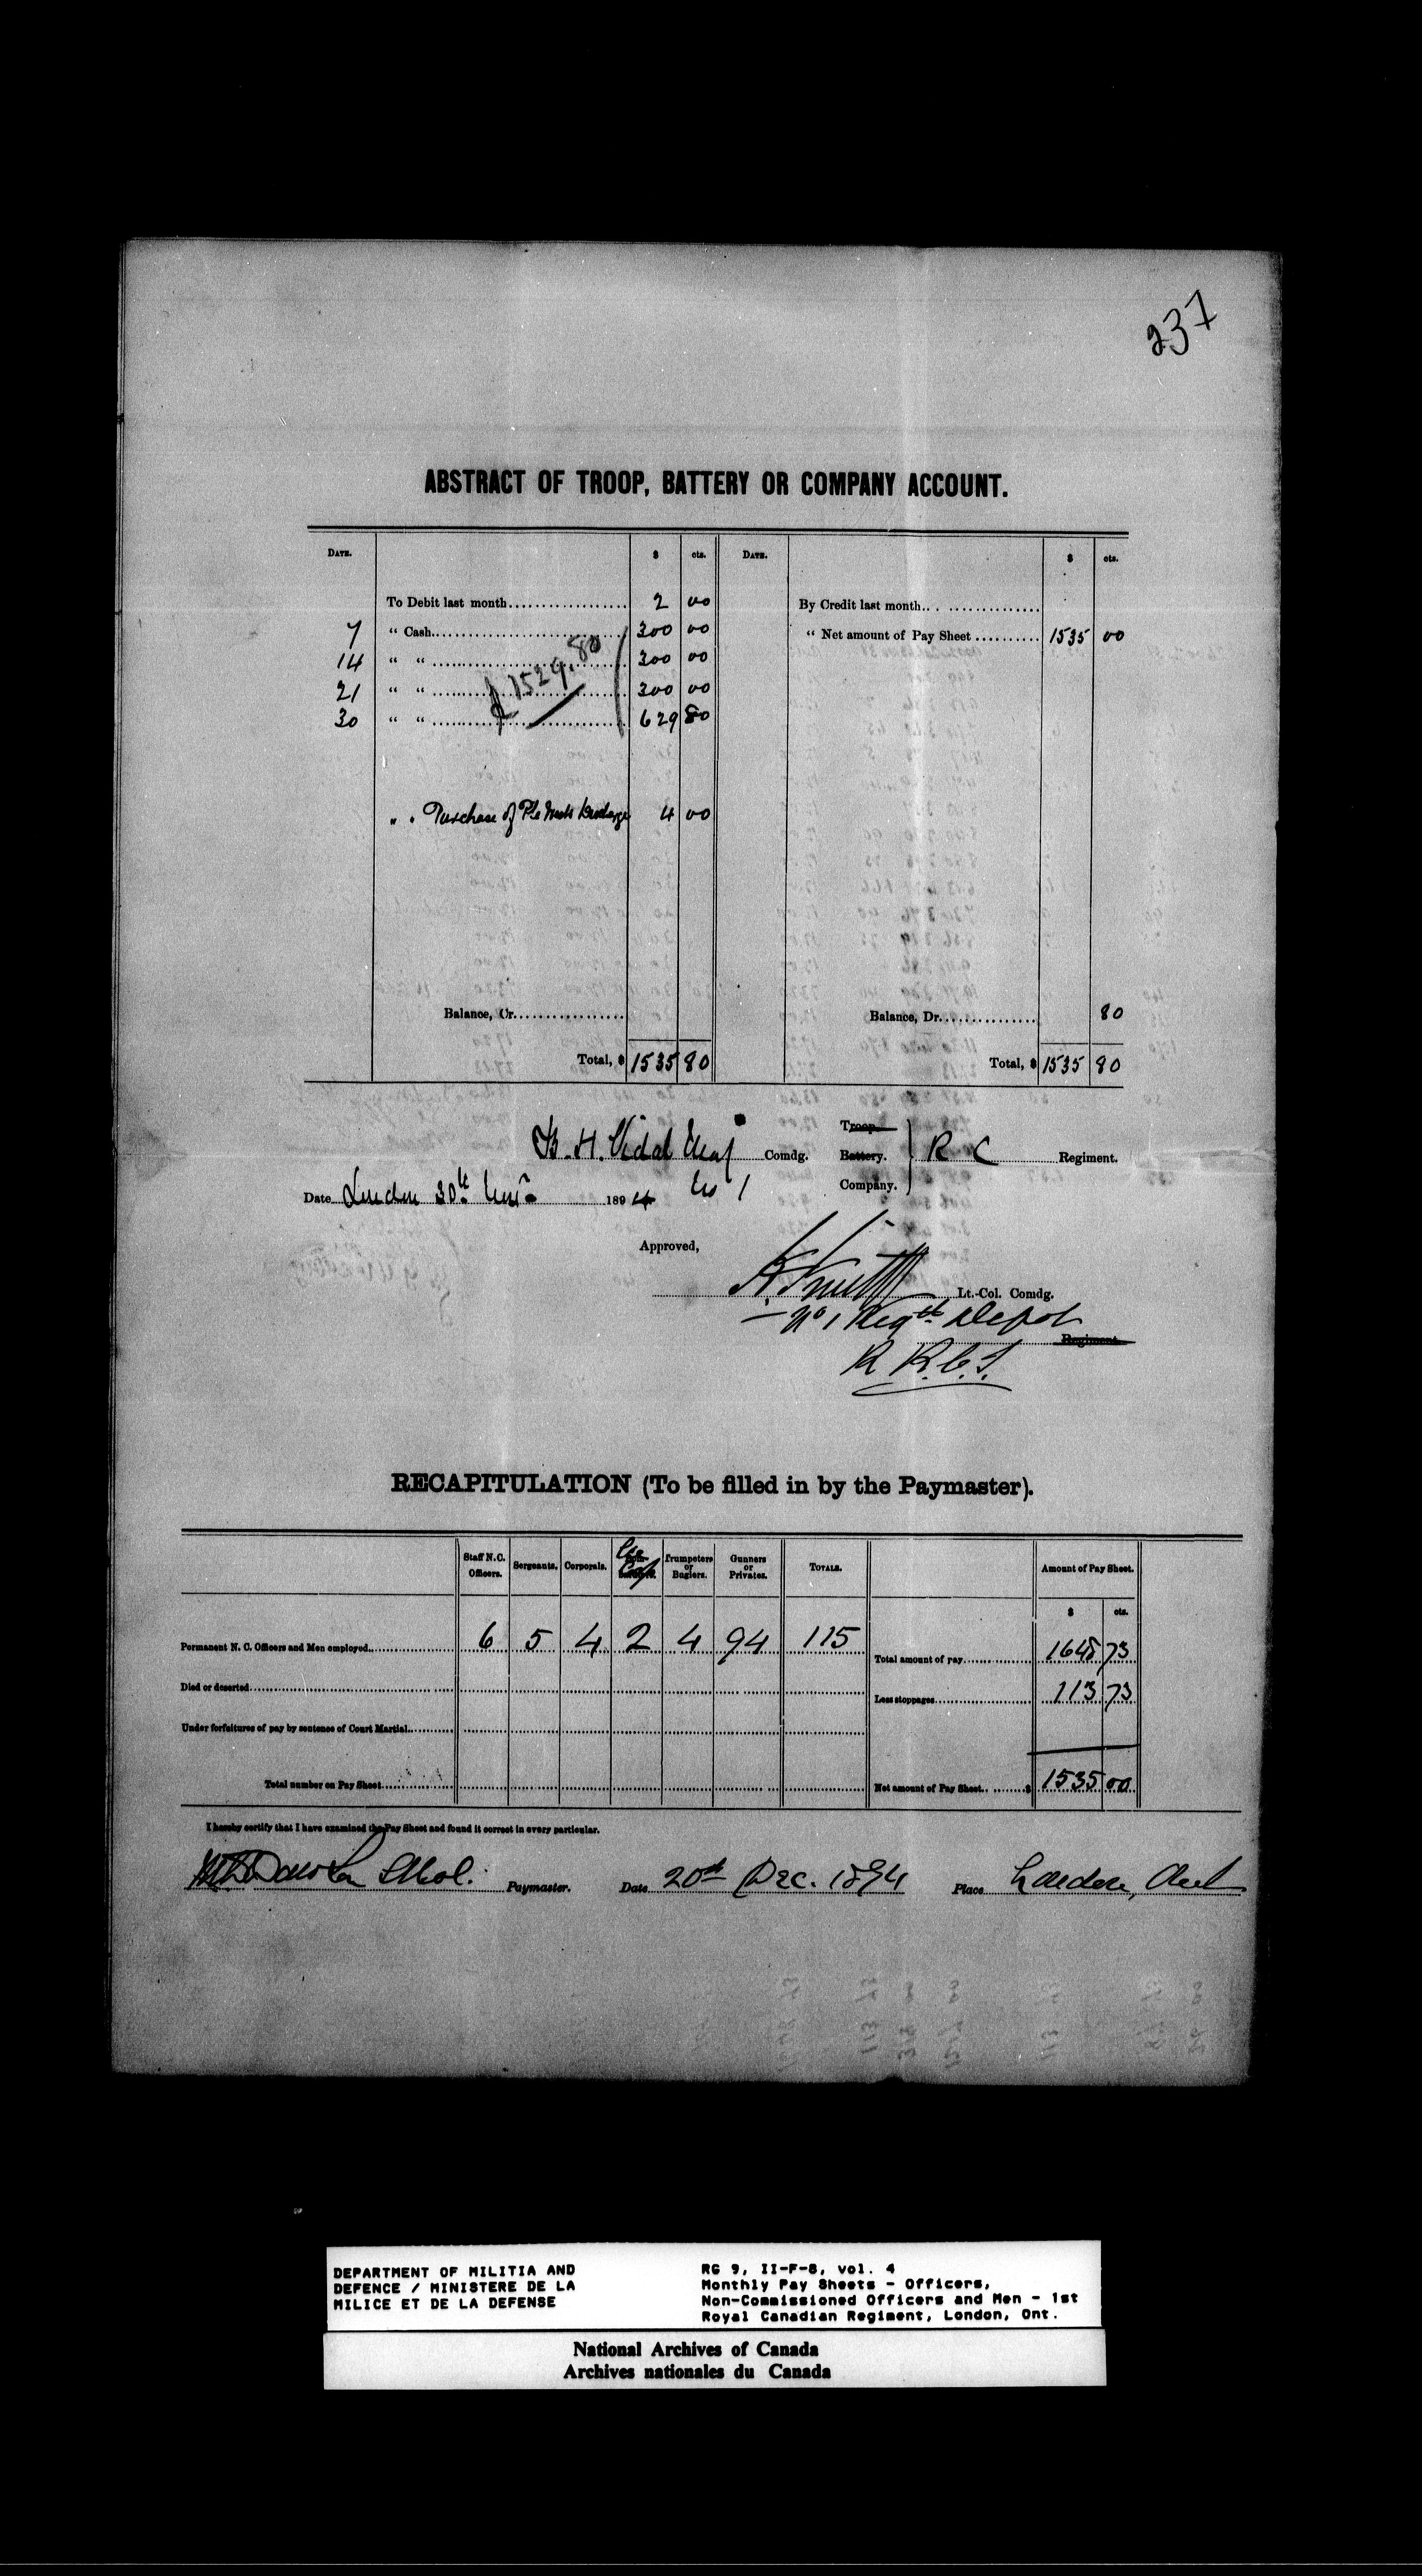 237
ABSTRACT OF TROOP, BATTERY OR COMPANY ACCOUNT.
DATE. $ cts. DATE. $ cts.
To Debit last month 2 00 By Credit last month
7 " Cash 300 00 " Net amount of Pay Sheet 1535 00
14 " " 300 00
$1529.80
21 " " 300 00
30 " " 629 80
" " Purchase of Pte Discharge 4 00
Balance, Cr. Balance, Dr. 80
Total, $ 1535 80 Total, $ 1535 80
Troop.
B. H. Vidal Maj Comdg. Battery. R C Regiment.
Date London 30th Nov. 1894 No 1 Company.
Approved,
H. Smith Lt.-Col. Comdg.
No 1 Regtl Depot
Regiment.
R R.C.I.
RECAPITULATION (To be filled in by the Paymaster).
Staff N.C. Officers. Sergeants. Corporals. Trumpeters or Buglers. Gunners or Privates. TOTALS. Amount of Pay Sheet.
$ cts.
Permanent N. C. Officers and Men employed 6 5 4 2 4 94 115 Total amount of pay 1648 73
Died or deserted Less stoppages 113 73
Under forfeitures of pay by sentence of Court Martial
Total number on Pay Sheet Net amount of Pay Sheet $ 1535 00
I hereby certify that I have examined the Pay Sheet and found it correct in every particular.
Dawson Lt Col. Paymaster. Date 20th Dec. 1894 Place London, Ont
DEPARTMENT OF MILITIA AND
DEFENCE / MINISTERE DE LA
MILICE ET DE LA DEFENSE
RG 9, II-F-8, vol. 4
Monthly Pay Sheets - Officers,
Non-Commissioned Officers and Men - 1st
Royal Canadian Regiment, London, Ont.
National Archives of Canada
Archives nationales du Canada